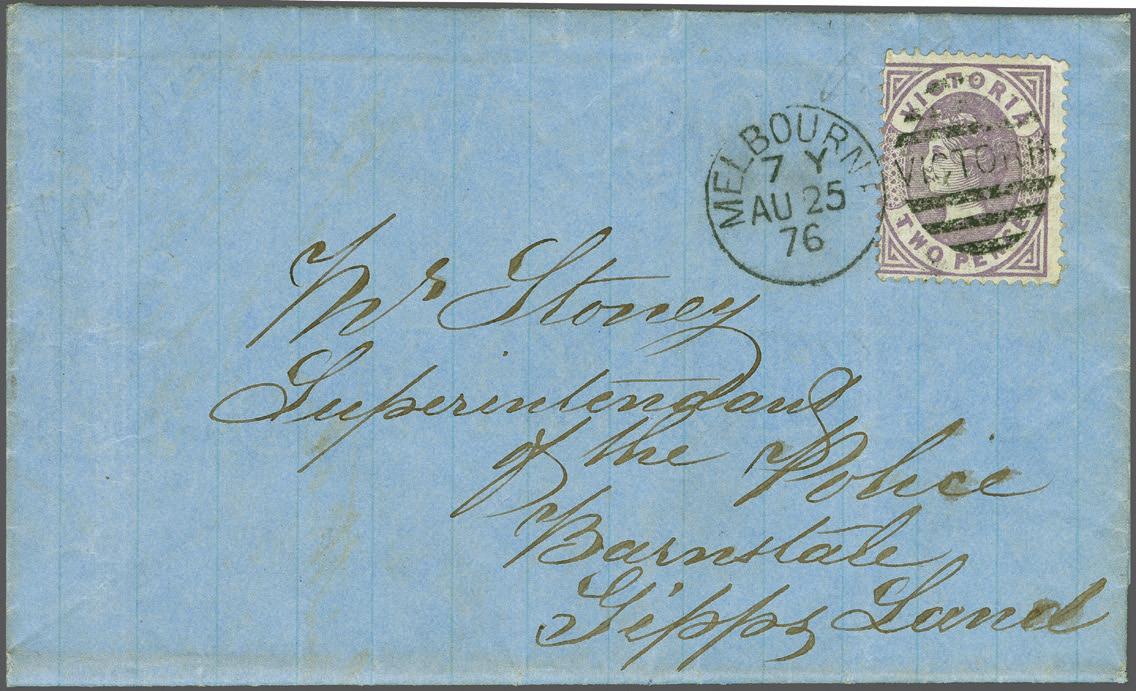 VICTORIA
TWO PENCE
VICTORIA
MELBOURNE
7 Y
AU 25
76
Mr Stoney
Superintendant
of the Police
Barnstale
Gipps Land